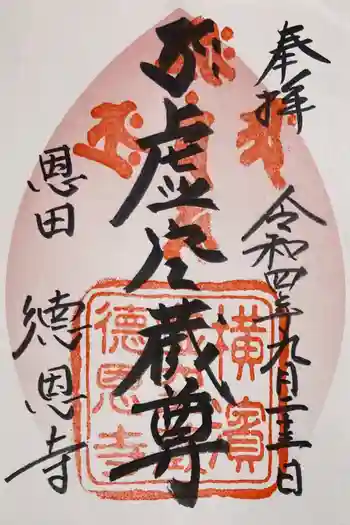 奉拝
令和四年九月二十三日
虚空蔵尊
恩田
徳恩寺
橫濱
德恩寺